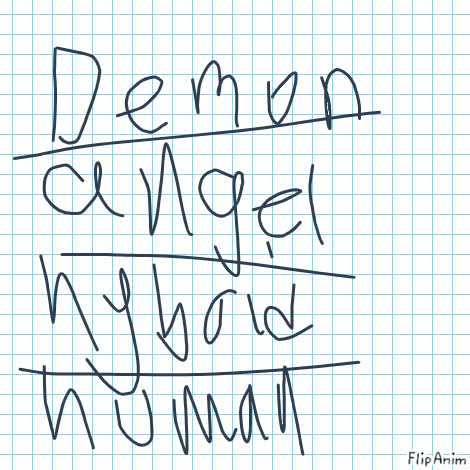 Demon
angel
hybrid
human
FlipAnim